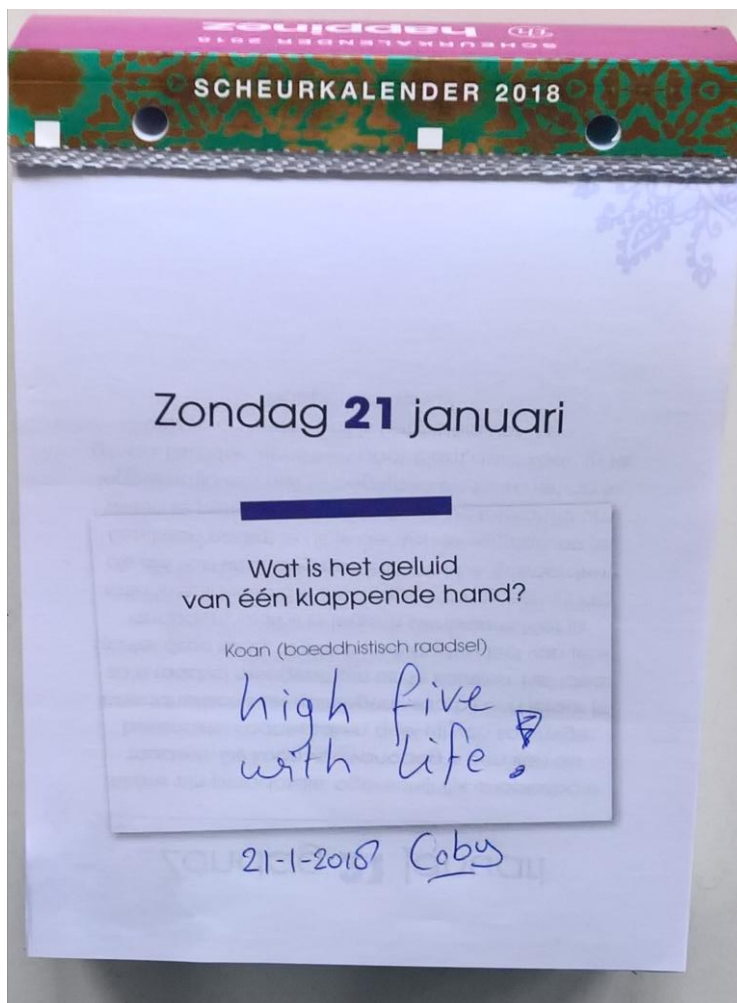 happinez
SCHEURKALENDER 2018
SCHEURKALENDER 2018
Zondag 21 januari
Wat is het geluid
van één klappende hand?
Koan (boeddhistisch raadsel)
high five
with life!
21-1-2018 Coby